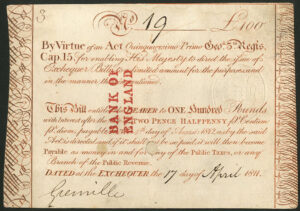 3 No. 19 £100
By Virtue of an Act Quinquagesimo Primo Geo. 3.ii Regis,
Cap. 15. for enabling His Majesty to direct the issue of
Exchequer Bills to a limited amount for the purposes and
in the manner therein mentioned.
This Bill entitles the BEARER to ONE Hundred Pounds
with Interest after the rate of TWO PENCE HALFPENNY P.r Centum
P.r diem, payable day of 1812, as by the said
Act is directed, and if it shall not be so paid, it will then become
Payable as money in and for any of the Public Taxes, or any
Branch of the Public Revenue.
DATED at the EXCHEQUER the 17 day of April 1811.
Grenville
BANK OF
ENGLAND